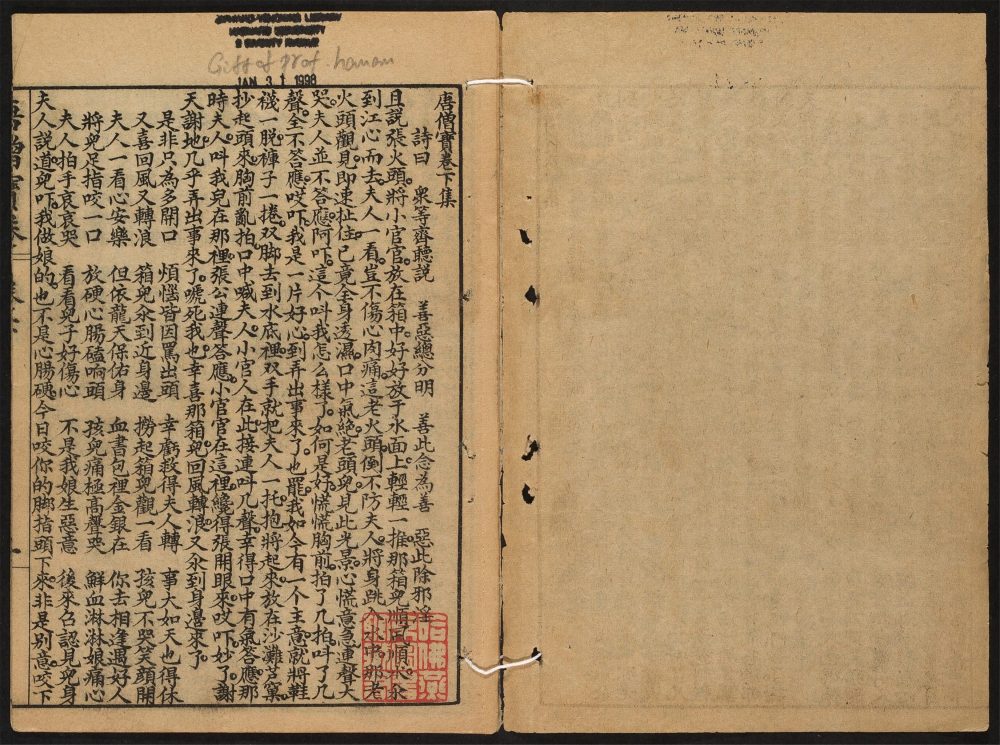 HARVARD-YENCHING LIBRARY
HARVARD UNIVERSITY
2 DIVINITY AVENUE
Gift of prof. hanan
JAN 31 1998
唐僧寶卷下集
詩曰 衆等齊聽説 善惡總分明 善此念為善 惡此除邪淫
且説張火頭將小官官放在箱中好好放于水面上輕輕一推那箱兒順風順水氽
到江心而去夫人一看豈不傷心肉痛這老火頭倒不防夫人將身跳入水中那老
火頭觀見即速扯住已竟全身透濕口中氣絶老頭兒見此光景心慌意急連聲大
哭夫人並不答應阿吓這个叫我怎么樣了如何是好慌慌胸前拍了几拍叫了几
聲全不答應哎吓我是一片好心到弄出事來了也罷我如今有一个主意就將鞋
襪一脱褲子一捲双脚去到水底裡双手就把夫人一托抱將起來放在沙灘芦窠
抄起頭來胸前亂拍口中喊夫人小官人在此接連叫几聲幸得口中有氣答應那
時夫人叫我兒在那裡張公連聲答應小官官在這裡纔得張開眼來哎吓好了謝
天謝地几乎弄出事來了唬死我也幸喜那箱兒回風轉浪又氽到身邊來了
是非只為多開口 煩惱皆因罵出頭 幸虧救得夫人轉 事大如天也得休
又喜回風又轉浪 箱兒氽到近身邊 撈起箱兒觀一看 孩兒不哭笑顏開
夫人一看心安樂 但依龍天保佑身 血書包裡金銀在 你去相逢遇好人
將兒足指咬一口 放硬心腸磕响頭 孩兒痛極高聲哭 鮮血淋淋娘痛心
夫人拍手哀哀哭 看看兒子好傷心 不是我娘生惡意 後來叺認見兒身
夫人説道兒吓我做娘的也不是心腸硬今日咬你的脚指頭下來非是别意咬下